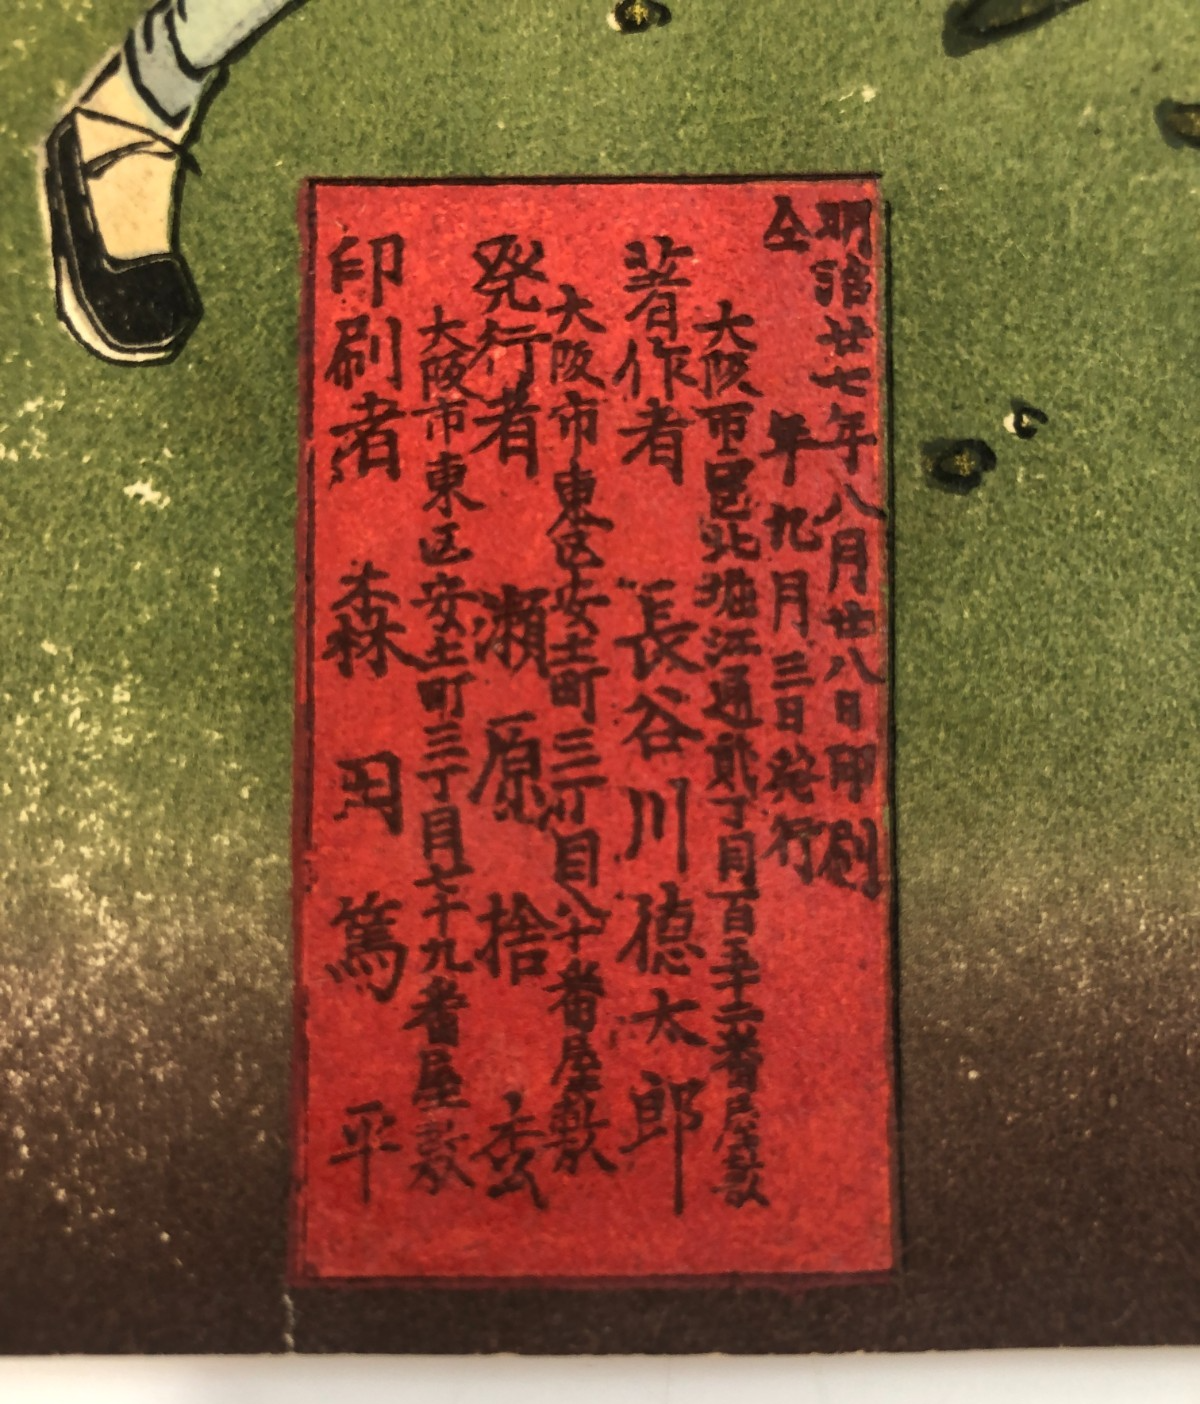 明治廿七年八月廿八日印刷
仝 年九月三日発行
大阪市西区北堀江通貳丁目百五十二番屋敷
著作者 長谷川徳太郎
大阪市東区安土町三丁目八十番屋敷
発行者 瀬原捨枩
大阪市東区安土町三丁目七十九番屋敷
印刷者 森田篤平